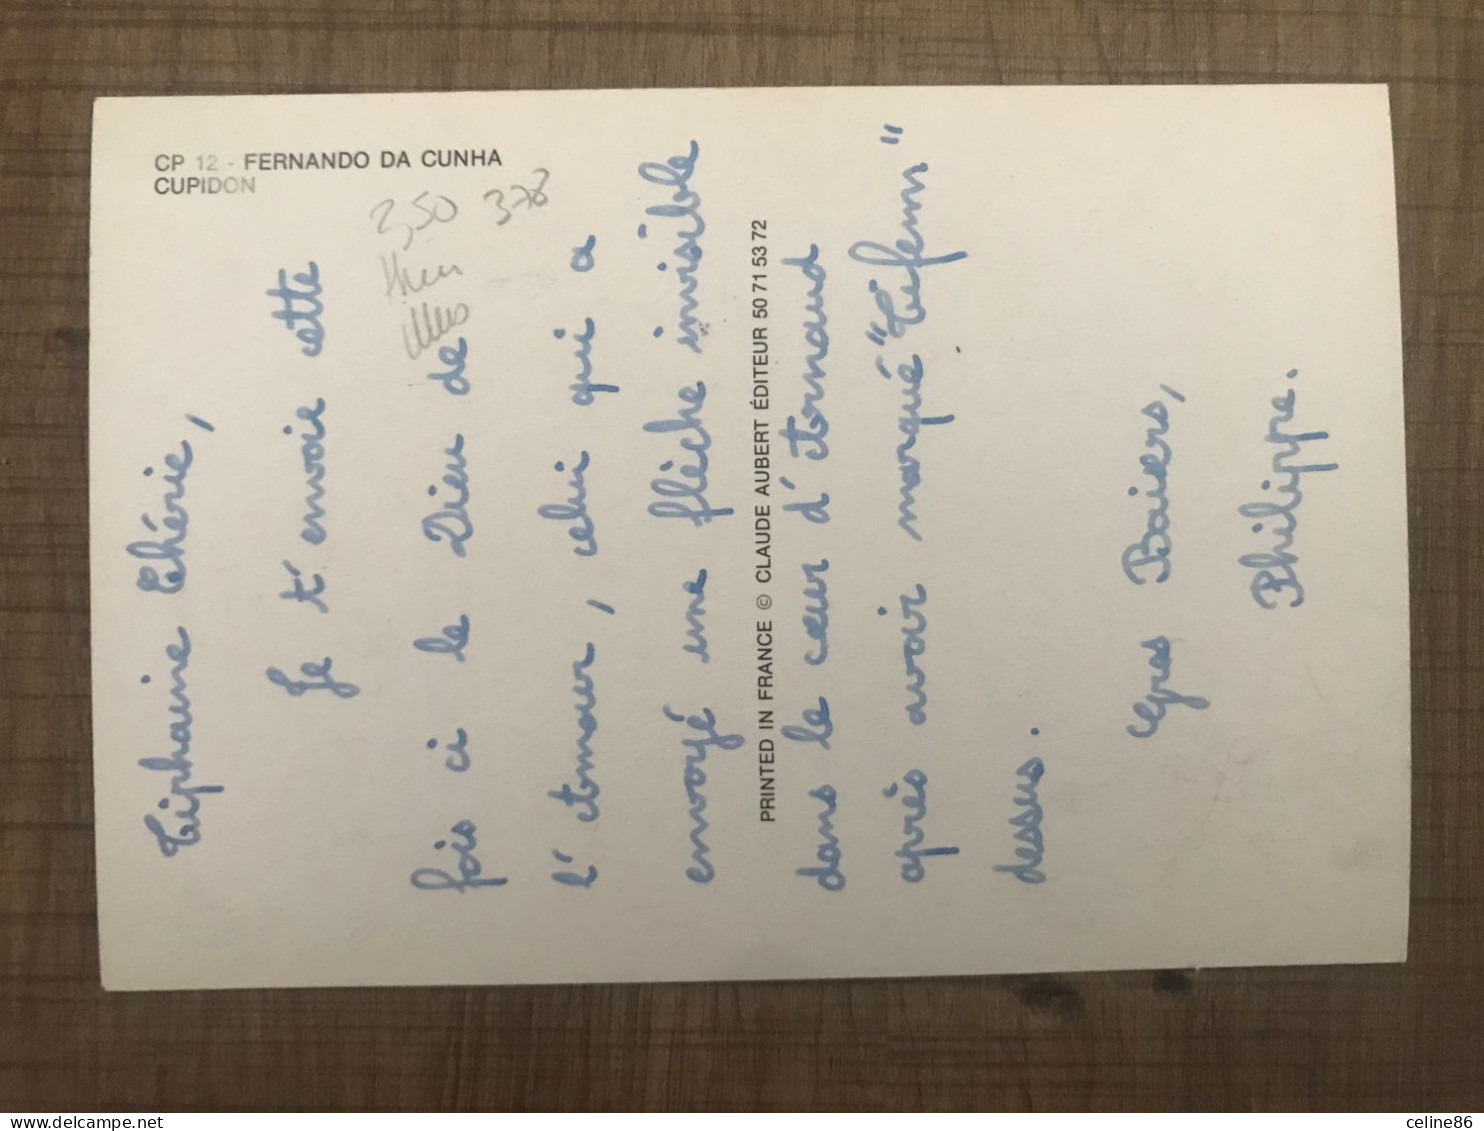 CP 12 - FERNANDO DA CUNHA
CUPIDON
350 378
Tiphaine Chérie,
Je t'envoie cette
fois ci le Dieu de
l'Amour, celui qui a
envoyé une flèche invisible
dans le cœur d'Arnaud
après avoir marqué "Tifenn"
dessus.
Gros Baisers,
Philippe.
PRINTED IN FRANCE © CLAUDE AUBERT ÉDITEUR 50 71 53 72
www.delcampe.net
celine86